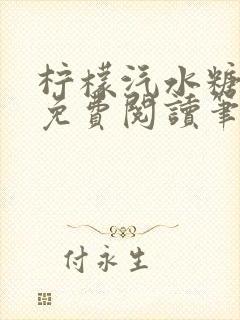 柠檬汽水糖
免費閱讀筆
付永生